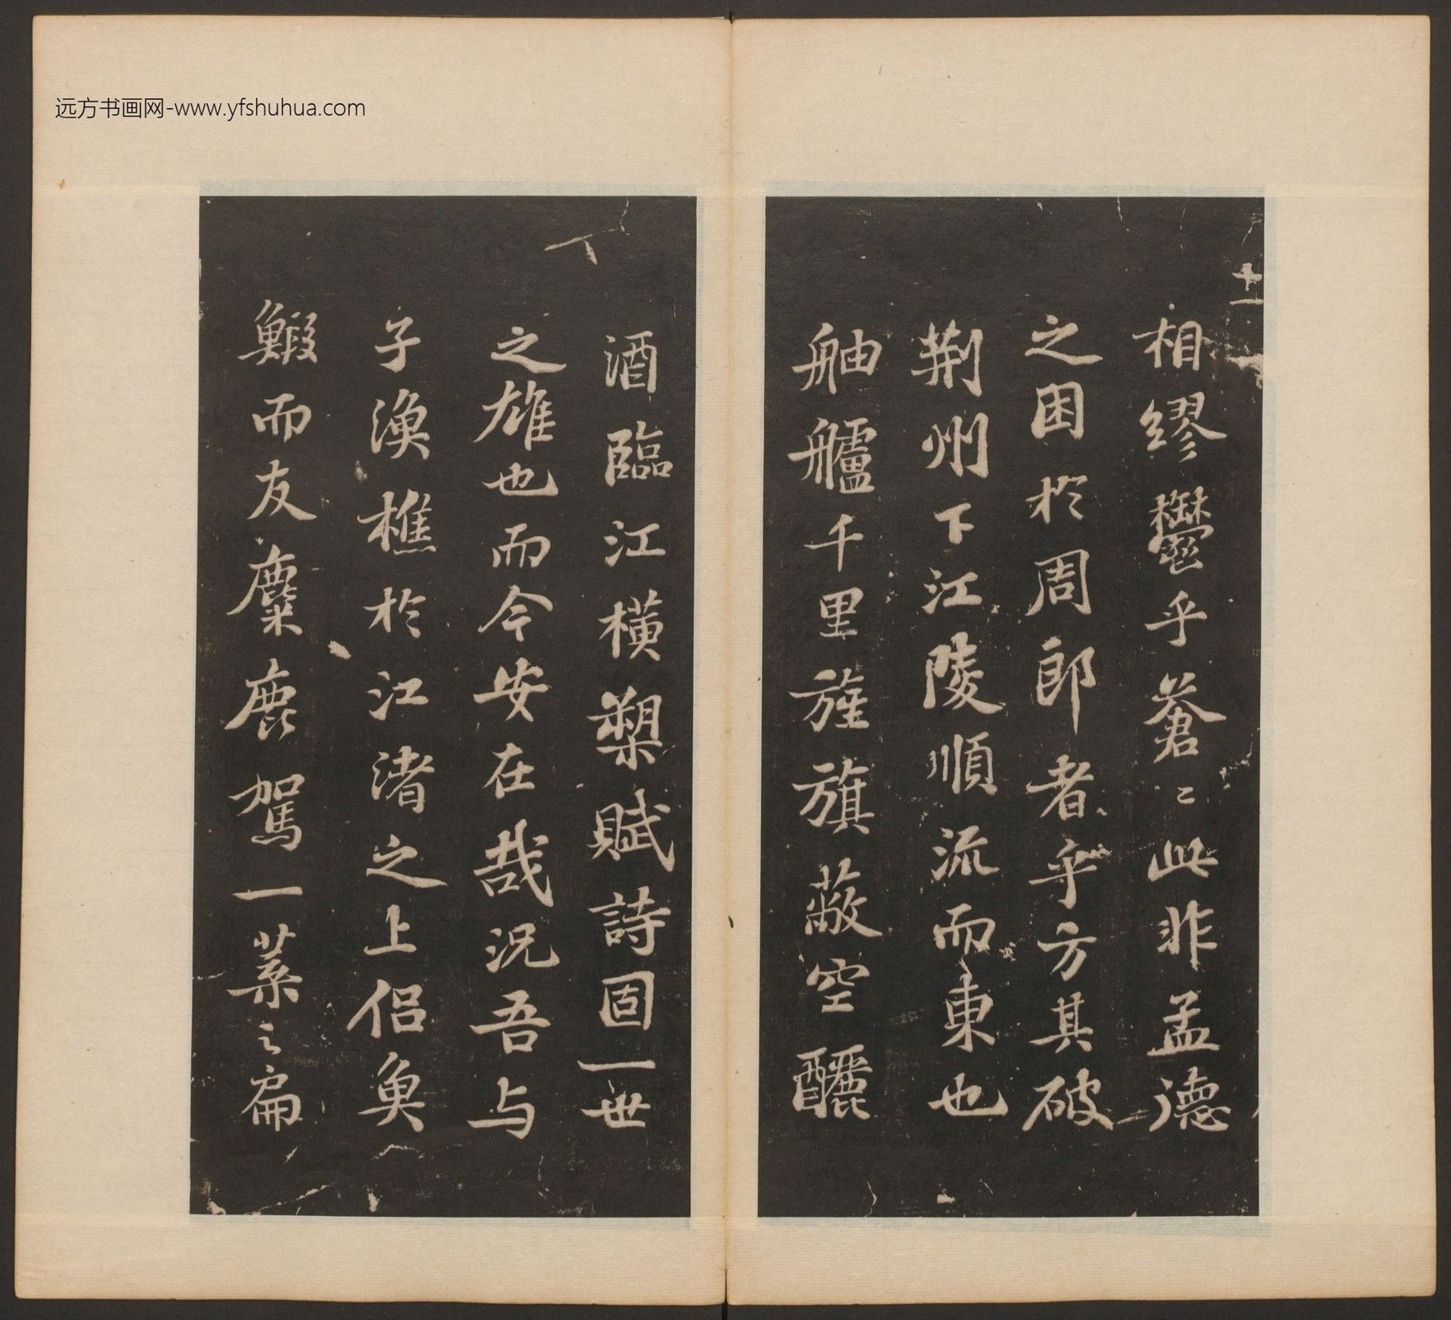 远方书画网-www.yfshuhua.com
十一
相繆鬱乎蒼〻此非孟德
之困於周郎者乎方其破
荊州下江陵順流而東也
舳艫千里旌旗蔽空釃
酒臨江橫槊賦詩固一世
之雄也而今安在哉況吾与
子漁樵於江渚之上侣魚
鰕而友麋鹿駕一葉之扁